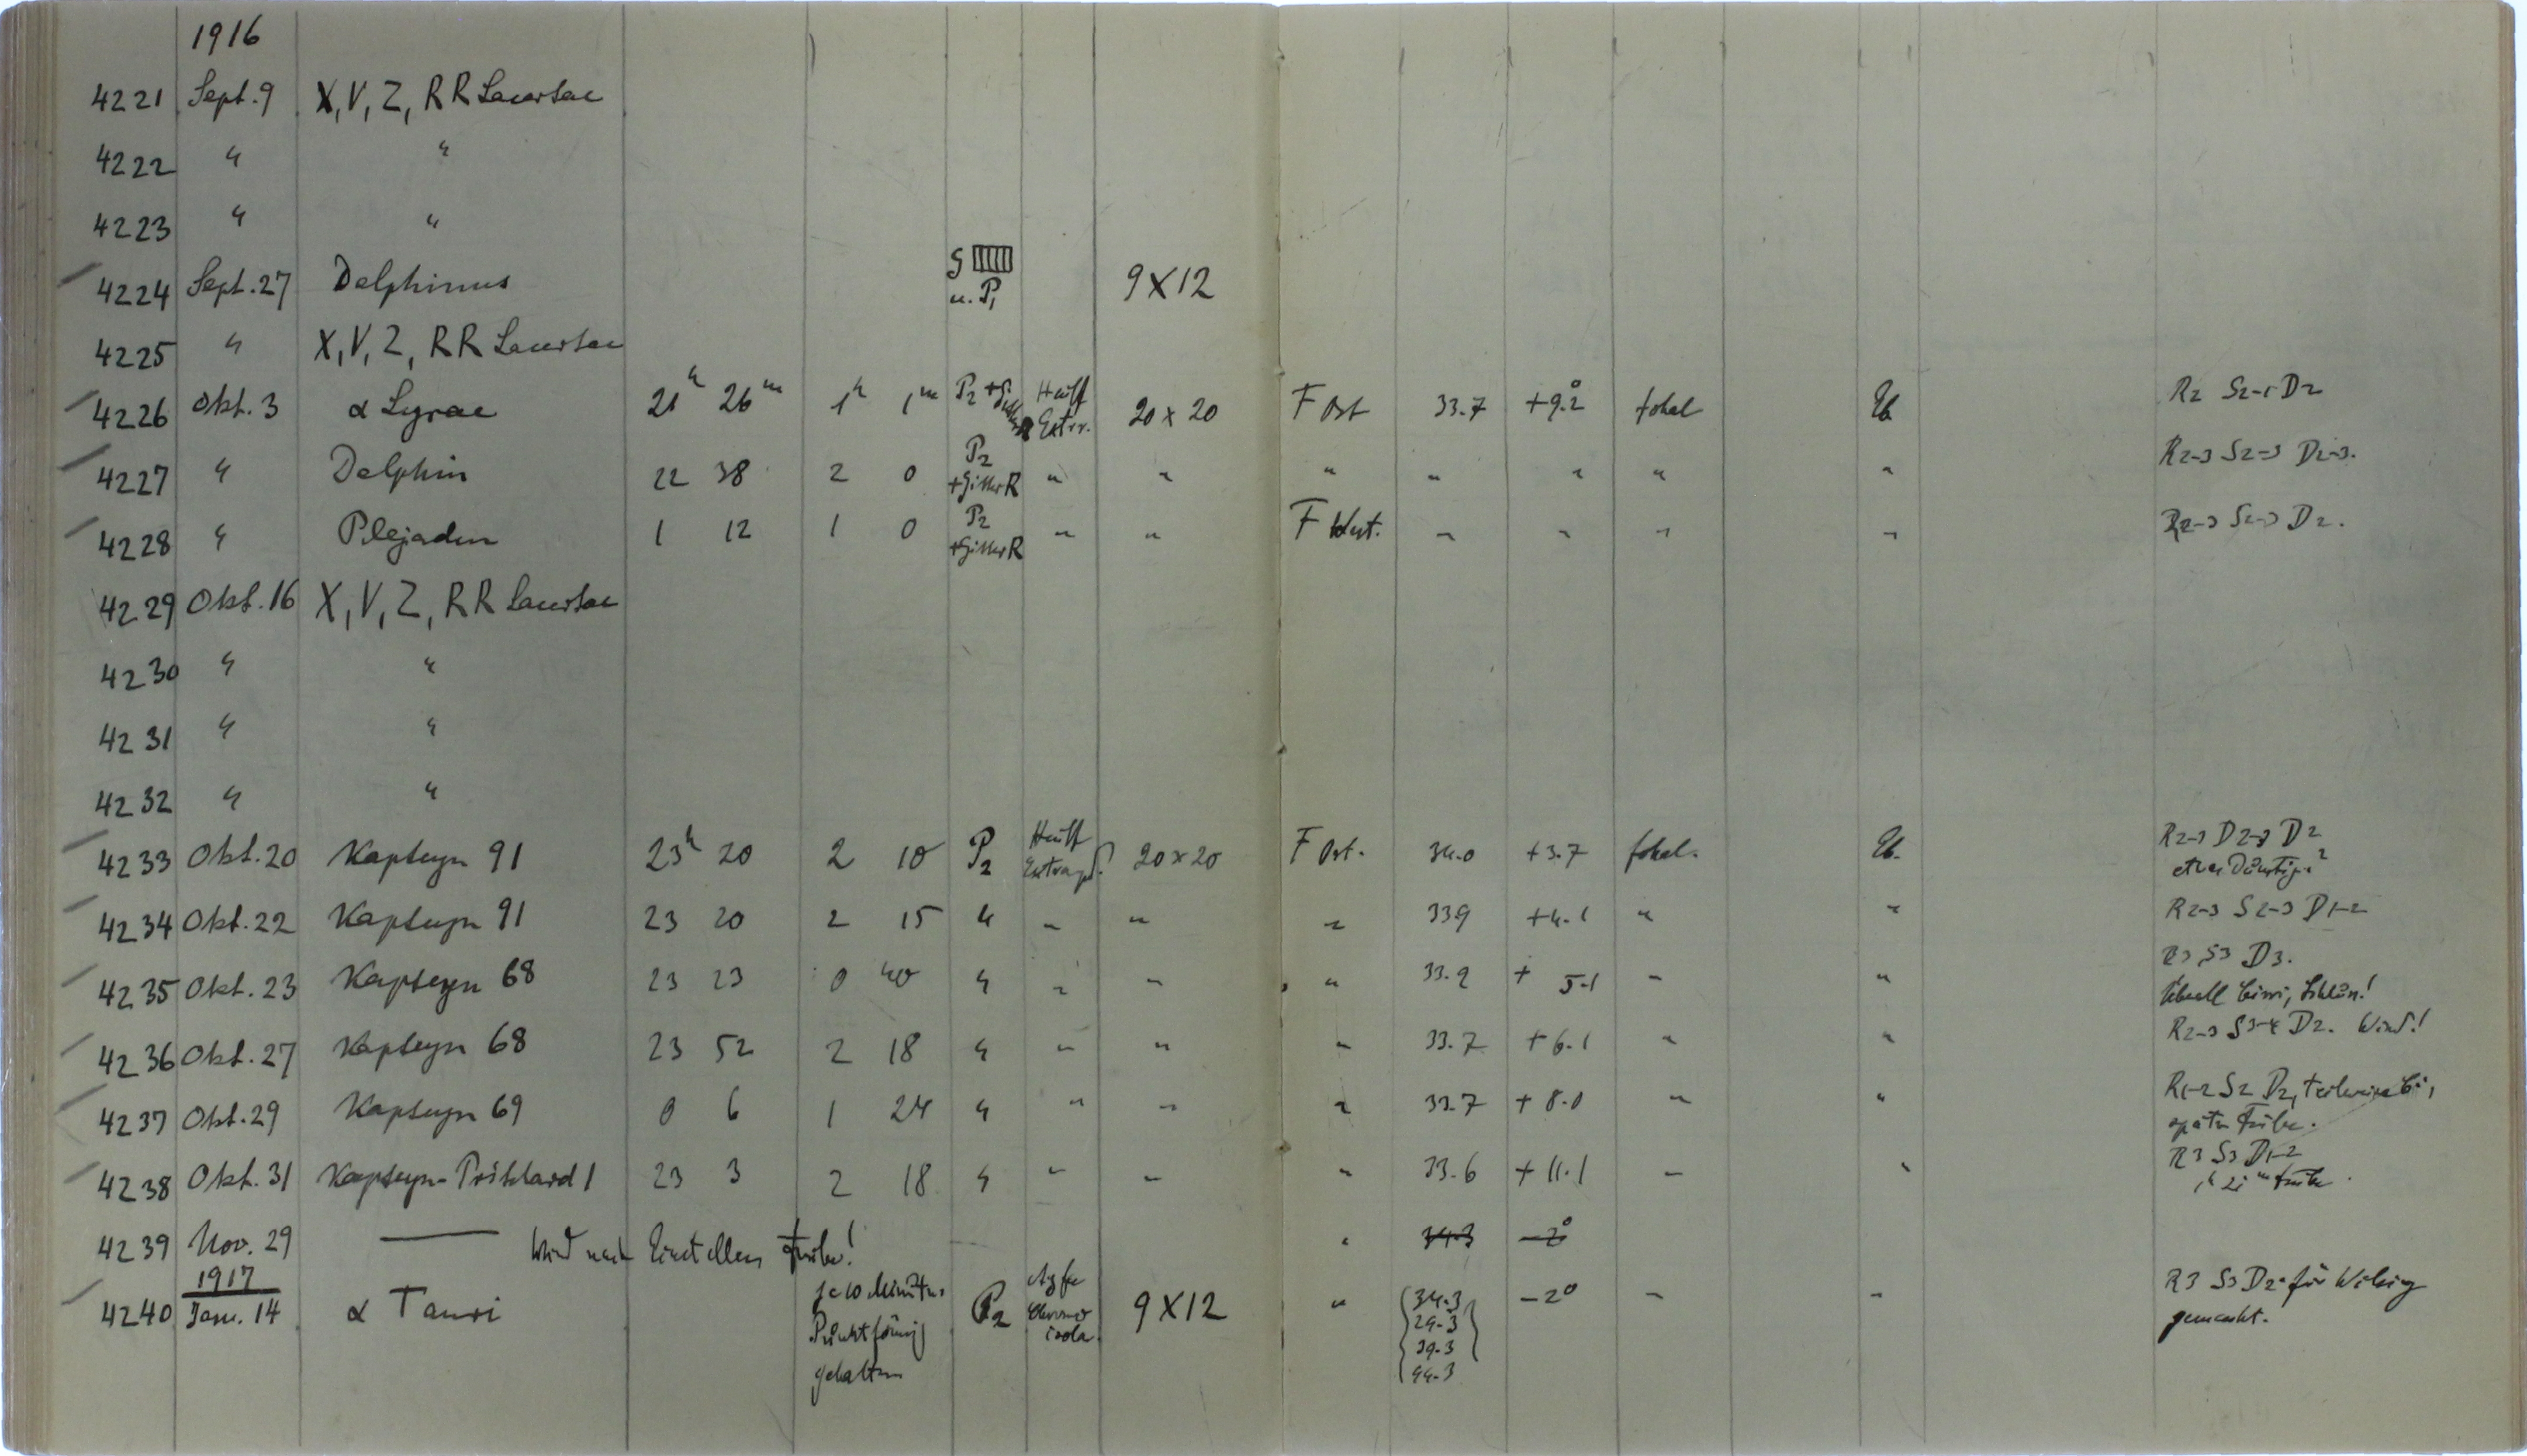 1916
4221 Sept. 9 X, V, Z, RR Lacertae
4222 " "
4223 " "
4224 Sept. 27 Delphinus G u. P1 9 X 12
4225 " X, V, Z, RR Lacertae
4226 Okt. 3 α Lyrae 21h 26m 1h 1m P2 + Gitter R Hauff Extrr. 20 x 20 F Ost 33.7 +9.2° fokal Eb. R2 S2-1 D2
4227 " Delphin 22 38 2 0 P2 + Gitter R " " " " " " " R2-3 S2-3 D2-3.
4228 " Plejaden 1 12 1 0 P2 + Gitter R " " F West. " " " " R2-3 S2-3 D2.
4229 Okt. 16 X, V, Z, RR Lacertae
4230 " "
4231 " "
4232 " "
4233 Okt. 20 Kapteyn 91 23h 20 2 10 P2 Hauff Extrapid. 20 x 20 F Ost. 34.0 +3.7 fokal. Eb. R2-3 D2-3 D2
etwas Dunstig.?
4234 Okt. 22 Kapteyn 91 23 20 2 15 " " " " 33.9 +4.1 " " R2-3 S2-3 D1-2
4235 Okt. 23 Kapteyn 68 23 23 0 40 " " " " 33.9 + 5.1 " " R3 S3 D3.
4236 Okt. 27 Kapteyn 68 23 52 2 18 " " " " 33.7 +6.1 " " R2-3 S3-4 D2. Wind!
4237 Okt. 29 Kapteyn 69 0 6 1 24 " " " " 33.7 +8.0 " " R1-2 S2 D2, teilweise Ci,
später trübe.
4238 Okt. 31 Kapteyn-Pritchard 1 23 3 2 18 " " " " 33.6 +11.1 " " R3 S3 D1-2
trübe.
4239 Nov. 29 — Wird nach Einstellen trübe! " 34.3 -2°
1917
4240 Jan. 14 α Tauri je 10 Minuten Punktförmig gehalten P2 Agfa Chromo isolar. 9 X 12 " 34.3 29.3 39.3 44.3 -2° " " R3 S3 D2. für Wilsing
gemacht.